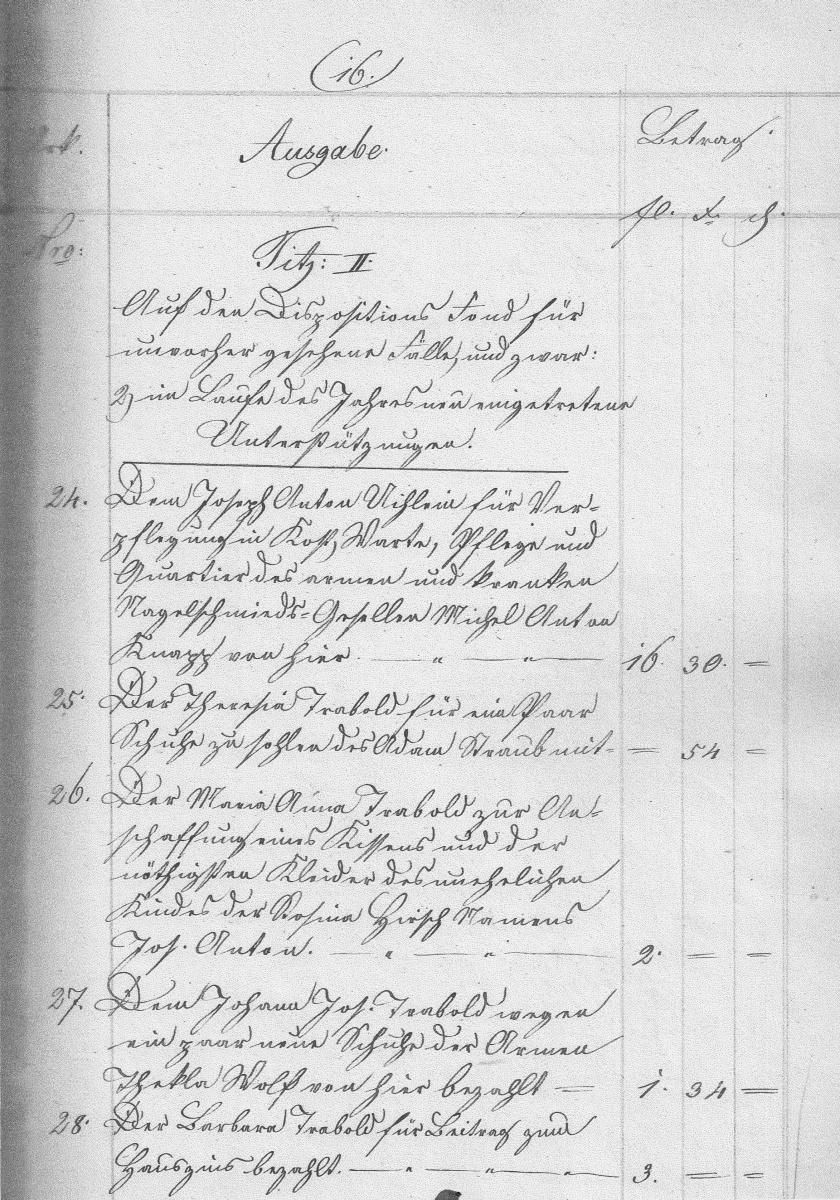 (16.)
Ausgabe.
Betrag.
fl. x. d.
Nro:
Titz: II.
Auf den Dispositions Fond für
unvorher gesehene Fälle, und zwar:
2) im Laufe des Jahres neu eingetretene
Unterstützungen.
24. Dem Joseph Anton Uihlein für Ver-
pflegung in Kost, Warte, Pflege und
Quartier des armen und kranken
Nagelschmieds-Gesellen Michel Anton
Knapp von hier — " — " — 16. 30. =
25. Der Theresia Trabold für ein Paar
Schuhe zu sohlen des Adam Straub mit = 54 =
26. Der Maria Anna Trabold zur An-
schaffung eines Kissens und der
nöthigsten Kleider des unehelichen
Kindes der Rosina Hirsch Namens
Jos. Anton. — " — " — 2. = =
27. Dem Johann Jos. Trabold wegen
ein paar neue Schuhe der Armen
Thekla Wolf von hier bezahlt = 1. 34 =
28. Der Barbara Trabold für Beitrag zum
Hauszins bezahlt. — " — " — " — 3. = =